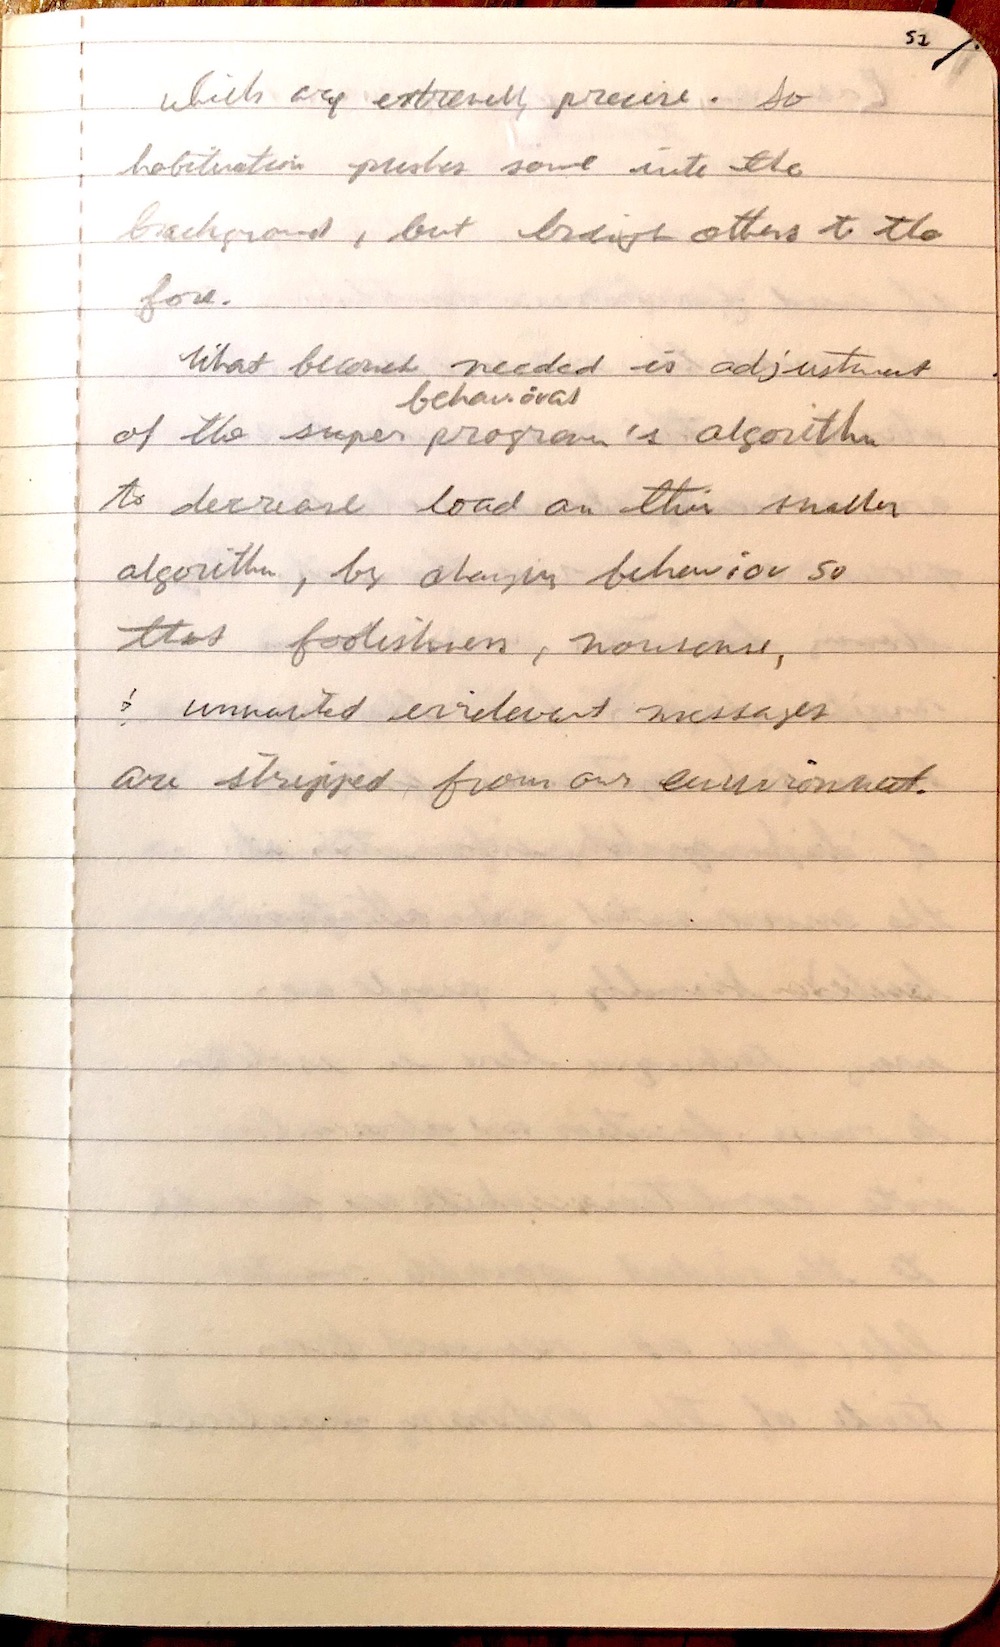 51
which are extremely precise. So
habituation pushes some into the
background, but brings others to the
fore.
What becomes needed is adjustment
behavioral
of the super program's algorithm
to decrease load on this smaller
algorithm, by changing behavior so
that foolishness, nonsense,
& unwanted irrelevant messages
are stripped from our environment.